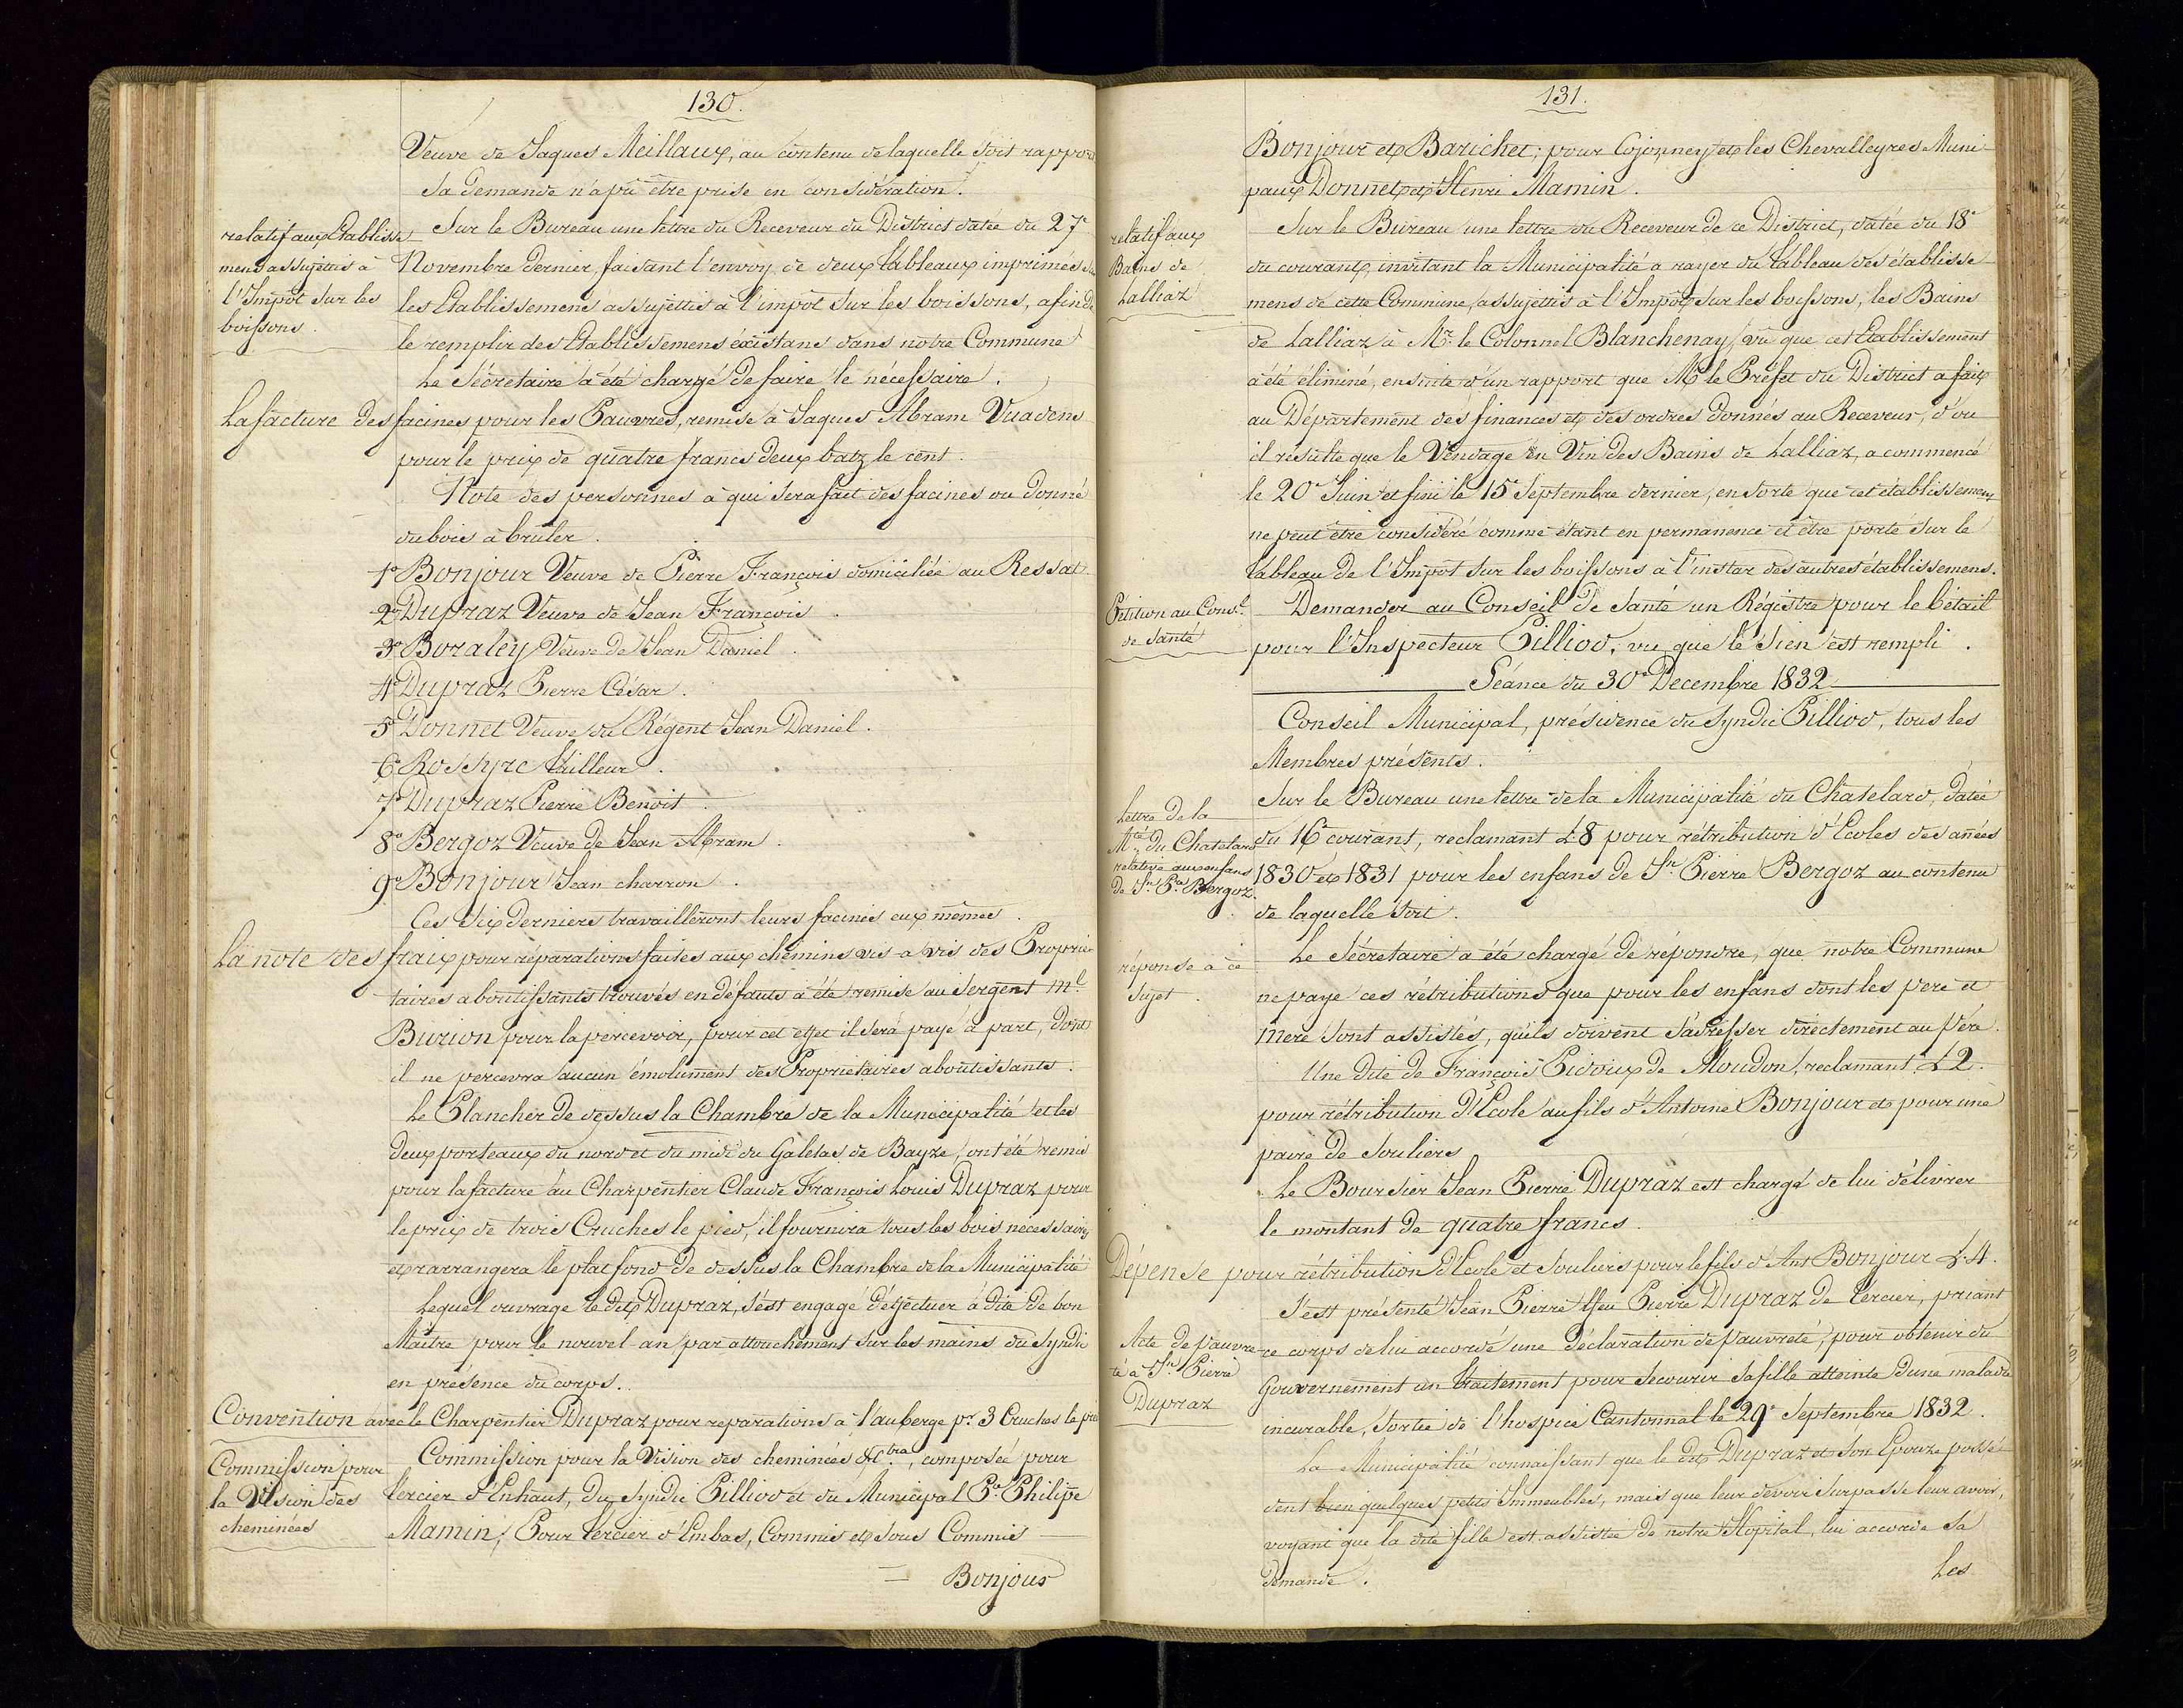 130.
Veuve de Jaques Meillaux, au contenu de laquelle soit rapport
sa demande n'a pû être prise en considération.
relatif aux Etablisse
mens assujettis à
l'Impôt sur les
boissons.
Sur le Bureau une lettre du Receveur du District datée du 27e
Novembre dernier, faisant l'envoy de deux tableaux imprimées
les Etablissemens assujettis à l'impôt sur les boissons, afin de
le remplir des Etablissemens existans dans notre Commune
Le Sécretaire a été chargé de faire le nécessaire.
La facture des facines pour les Pauvres, remise à Jaques Abram Vuadens
pour le prix de quatre francs deux batz le cent.
Note des personnes à qui sera fait des facines ou donné
du bois à bruler.
1º Bonjour Veuve de Pierre François domiciliée au Ressat
2º Dupraz Veuve de Jean François.
3º Boraley Veuve de Jean Daniel.
4º Dupraz Pierre César.
5º Donnet Veuve du Régent Jean Daniel.
6º Rossyre tailleur.
7º Dupraz Pierre Benoit.
8º Bergoz Veuve de Jean Abram.
9º Bonjour Jean charron.
Ces six derniers travailleront leurs facines eux mêmes.
La note des fraix pour réparations faites aux chemins vis-a vis des Proprié-
taires aboutissants trouvés en défauts a été remise au Sergent ml
Burion pour la percevoir, pour cet effet il sera payé à part, dont
il ne percevra aucun émolument des Propriétaires aboutissants.
Le Plancher de dessus la Chambre de la Municipalité et les
deux porteaux du nord et du midi du Galetas de Bayze, ont été remis
pour la facture au Charpentier Claude François Louis Dupraz pour
le prix de trois Cruches le pied, il fournira tous les bois necessaires
et rarrangera le platfond de dessus la Chambre de la Municipalité
Lequel ouvrage le dit Dupraz, s'est engagé d'effectuer à dite de bon
Maître pour le nouvel-an par attouchement sur les mains du Syndic
en présence du corps.
Convention avec le Charpentier Dupraz pour réparations à l'auberge pr. 3 Cruches le pié
Commission pour
la Vision des
cheminées
Commission pour la Vision des cheminées &tra, composée pour
Tercier d'Enhaut, du Syndic Pilliod et du Municipal Pe Philipe
Mamin; Pour Tercier d'Embas, Commis et sous Commis
Bonjour
131.
Bonjour et Barichet; pour Cojonney et les Chevalleyres Muni-
paux Donnet et Henri Mamin.
relatif aux
Bains de
Lalliaz
Sur le Bureau une lettre du Receveur de ce District, datée du 18e
du courant, invitant la Municipalité a rayer du tableau des établisse
mens de cette Commune, assujettis à l'Impôt sur les boissons, les Bains
de Lalliaz à Mr. le Colonnel Blanchenay, vû que cet Etablissement
a été éliminé, ensuite d'un rapport que Mr le Préfet du District a fait
au Département des finances et des ordres donnés au Receveur, d'ou
il résulte que le Vendage en Vin des Bains de Lalliaz, a commencé
le 20e Juin et fini le 15e Septembre dernier, en sorte que cet établissement
ne peut être considéré comme étant en permanence et être porté sur le
tableau de l'Impôt sur les boissons à l'instar des autres établissemens.
Pétition au Consl.
de santé
Demander au Conseil de Santé un Régistre pour le bétail
pour l'Inspecteur Pilliod, vu que le sien est rempli.
Séance du 30e Decembre 1832
Conseil Municipal, présidence du Syndic Pilliod, tous les
Membres présents.
Lettre de la
Mté. du Chatelard
relative aux enfans
de Jn Pre Bergoz.
Sur le Bureau une lettre de la Municipalité du Chatelard, datée
du 16e courant, reclamant L8 pour rétribution d'Ecoles des anées
1830 et 1831 pour les enfans de Jn Pierre Bergoz au contenu
de laquelle soit.
réponse à ce
sujet.
Le Sécretaire a été chargé de répondre, que notre Commune
ne paye ces rétributions que pour les enfans dont les pere et
mere sont assistés, qu'ils doivent s'adresser directement au Père.
Une dite de François Pidoux de Moudon, reclamant L2.
pour rétribution d'Ecole au fils d'Antoine Bonjour et pour une
paire de souliers
Le Boursier Jean Pierre Dupraz est chargé de lui délivrer
le montant de quatre francs.
Dépense pour rétribution d'Ecole et souliers pour le fils d'Ant Bonjour L 4.
Acte de pauvre-
té à Jn Pierre
Dupraz
S'est présenté Jean Pierre ffeu Pierre Dupraz de Tercier, priant
ce corps de lui accordé une déclaration de pauvreté, pour obtenir du
Gouvernement un traitement pour secourir sa fille atteinte d'une maladie
incurable, sortie de l'hospice Cantonnal le 29e Septembre 1832.
La Municipalité connaissant que le dit Dupraz et son Epouze possé-
dent bien quelques petits Immeubles, mais que leur devoir surpasse leur avoir,
voyant que la dite fille est assistée de notre Hopital, lui accorde sa
demande.
Les